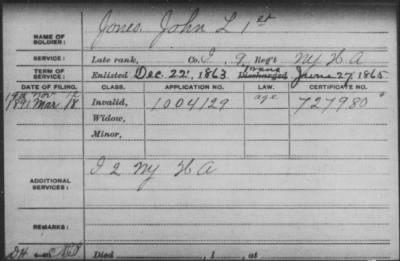 NAME OF SOLDIER: Jones, John L 1st
SERVICE: Late rank, Co. I, 9 Reg't NY H A
TERM OF SERVICE: Enlisted Dec. 22, 1863 Trans Discharged June 27, 1865
DATE OF FILING. CLASS. APPLICATION NO. LAW. CERTIFICATE NO.
Nov. 12 age
1891 Mar. 18 Invalid, 1004129 727980
Widow,
Minor,
ADDITIONAL SERVICES: I 2 NY H A
REMARKS:
Died , 1 , at